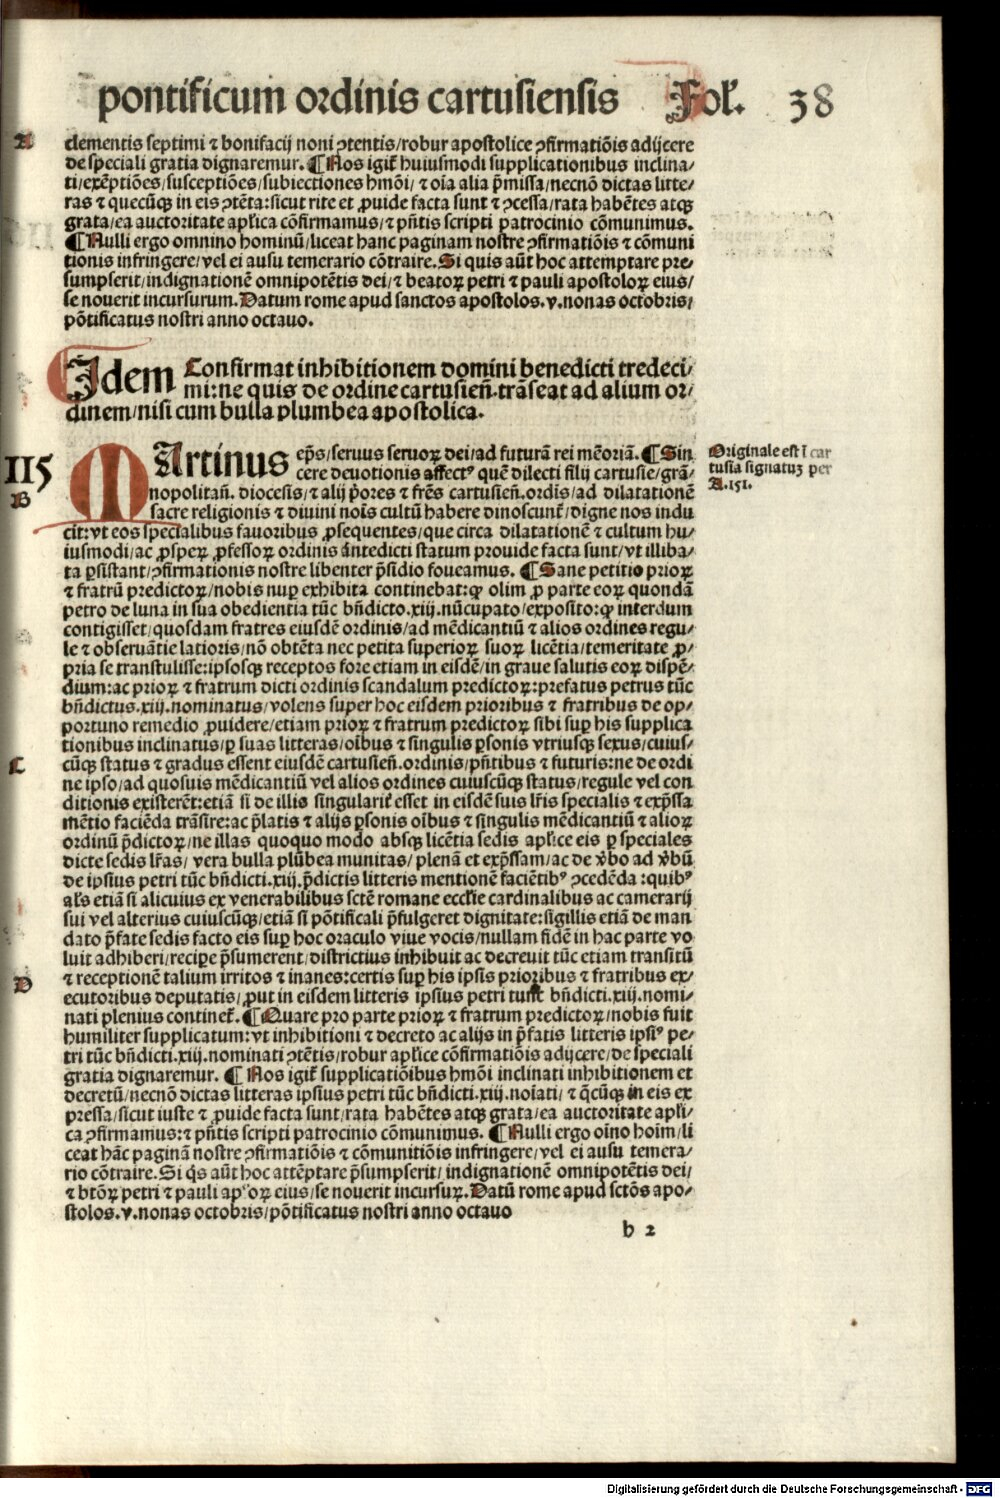 pontificum ordinis cartusiensis Fol. 38
A
clementis septimi ⁊ bonifacij noni ꝯtentis/robur apostolice ꝯfirmatiõis adijcere
de speciali gratia dignaremur. ¶Nos igit̃ huiusmodi supplicationibus inclina/
ti/exẽptiões/susceptiões/subiectiones hmõi/⁊ oĩa alia p̃missa/necnõ dictas litte/
ras ⁊ quecũqꝫ in eis ꝯtẽta:sicut rite et ꝓuide facta sunt ⁊ ꝯcessa/rata habẽtes atqꝫ
grata/ea auctoritate apl̃ica cõfirmamus/⁊ pñtis scripti patrocinio cõmunimus.
¶Nulli ergo omnino hominũ/liceat hanc paginam nostre ꝯfirmatiõis ⁊ cõmuni
tionis infringere/vel ei ausu temerario cõtraire. Si quis aũt hoc attemptare pre/
sumpserit/indignationẽ omnipotẽtis dei/⁊ beatoꝝ petri ⁊ pauli apostoloꝝ eius/
se nouerit incursurum. Datum rome apud sanctos apostolos. v. nonas octobris/
põtificatus nostri anno octauo.
Idem Confirmat inhibitionem domini benedicti tredeci/
mi:ne quis de ordine cartusieñ. trãseat ad alium or/
dinem/nisi cum bulla plumbea apostolica.
115
B
Originale est ĩ car
tusia signatuꝫ per
A. 151.
MArtinus ep̃s/seruus seruoꝝ dei/ad futurã rei mẽoriã. ¶Sin
cere deuotionis affectꝰ quẽ dilecti filij cartusie/grã/
nopolitañ. diocesis/⁊ alij p̃ores ⁊ frẽs cartusieñ. ordĩs/ad dilatationẽ
sacre religionis ⁊ diuini noĩs cultũ habere dinoscunt̃/digne nos indu
cit:vt eos specialibus fauoribus ꝓsequentes/que circa dilatationẽ ⁊ cultum hu/
iusmodi/ac ꝓsperꝫ ꝓfessoꝝ ordinis antedicti statum prouide facta sunt/vt illiba/
ta ꝑsistant/ꝯfirmationis nostre libenter p̃sidio foueamus. ¶Sane petitio prioꝝ
⁊ fratrũ predictoꝝ/nobis nuꝑ exhibita continebat:ꝙ olim ꝓ parte eoꝝ quondã
petro de luna in sua obedientia tũc bñdicto. xiij. nũcupato/exposito:ꝙ interdum
contigisset/quosdam fratres eiusdẽ ordinis/ad mẽdicantiũ ⁊ alios ordines regu/
le ⁊ obseruãtie latioris/nõ obtẽta nec petita superioꝝ suoꝝ licẽtia/temeritate ꝓ/
pria se transtulisse:ipsosqꝫ receptos fore etiam in eisdẽ/in graue salutis eoꝝ dispẽ/
dium:ac prioꝝ ⁊ fratrum dicti ordinis scandalum predictoꝝ:prefatus petrus tũc
bñdictus. xiij. nominatus/volens super hoc eisdem prioribus ⁊ fratribus de op/
portuno remedio ꝓuidere/etiam prioꝝ ⁊ fratrum predictoꝝ sibi suꝑ his supplica
tionibus inclinatus/ꝑ suas litteras/oĩbus ⁊ singulis ꝑsonis vtriusqꝫ sexus/cuius/
C
cũqꝫ status ⁊ gradus essent eiusdẽ cartusieñ. ordinis/pñtibus ⁊ futuris:ne de ordi
ne ipso/ad quosuis mẽdicantiũ vel alios ordines cuiuscũqꝫ status/regule vel con
ditionis existerẽt:etiã si de illis singularit̃ esset in eisdẽ suis lr̃is specialis ⁊ exp̃ssa
mẽtio faciẽda trãsire:ac p̃latis ⁊ alijs ꝑsonis oĩbus ⁊ singulis mẽdicantiũ ⁊ alioꝝ
ordinũ p̃dictoꝝ/ne illas quoquo modo absqꝫ licẽtia sedis apl̃ice eis ꝑ speciales
dicte sedis lr̃as/vera bulla plũbea munitas/plenã et exp̃ssam/ac de ṽbo ad ṽbũ
de ipsius petri tũc bñdicti. xiij. p̃dictis litteris mentionẽ faciẽtibꝰ ꝯcedẽda:quibꝰ
al̃s etiã si alicuius ex venerabilibus sctẽ romane eccl̃ie cardinalibus ac camerarij
sui vel alterius cuiuscũqꝫ/etiã si põtificali p̃fulgeret dignitate:sigillis etiã de man
dato p̃fate sedis facto eis suꝑ hoc oraculo viue vocis/nullam fidẽ in hac parte vo
luit adhiberi/reciꝑe p̃sumerent/districtius inhibuit ac decreuit tũc etiam transitũ
D
⁊ receptionẽ talium irritos ⁊ inanes:certis suꝑ his ipsis prioribus ⁊ fratribus ex/
ecutoribus deputatis/ꝓut in eisdem litteris ipsius petri tunc bñdicti. xiij. nomi/
nati plenius continet̃. ¶Quare pro parte prioꝝ ⁊ fratrum predictoꝝ/nobis fuit
humiliter supplicatum:vt inhibitioni ⁊ decreto ac alijs in p̃fatis litteris ipsiꝰ pe/
tri tũc bñdicti. xiij. nominati ꝯtẽtis/robur apl̃ice cõfirmatiõis adijcere/de speciali
gratia dignaremur. ¶Nos igit̃ supplicatiõibus hmõi inclinati inhibitionem et
decretũ/necnõ dictas litteras ipsius petri tũc bñdicti. xiij. noĩati/⁊ q̃cũqꝫ in eis ex
pressa/sicut iuste ⁊ ꝓuide facta sunt/rata habẽtes atqꝫ grata/ea auctoritate apl̃i/
ca ꝯfirmamus:⁊ pñtis scripti patrocinio cõmunimus. ¶Nulli ergo oĩno hoĩm/li
ceat hãc paginã nostre ꝯfirmatiõis ⁊ cõmunitiõis infringere/vel ei ausu temera/
rio cõtraire. Si q̃s aũt hoc attẽptare p̃sumpserit/indignationẽ omnipotẽtis dei/
⁊ btõꝝ petri ⁊ pauli apl̃oꝝ eius/se nouerit incursuꝝ. Datũ rome apud sctõs apo/
stolos. v. nonas octobris/põtificatus nostri anno octauo
b 2
Digitalisierung gefördert durch die Deutsche Forschungsgemeinschaft - DFG